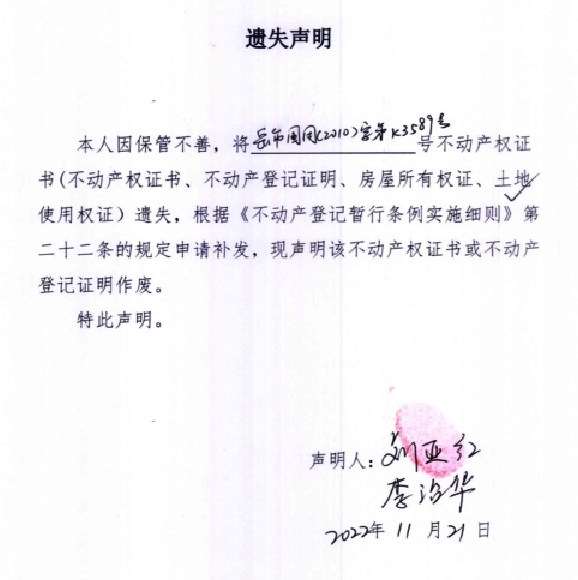 遗失声明
本人因保管不善，将岳市国用(2010)字第K3589号号不动产权证
书(不动产权证书、不动产登记证明、房屋所有权证、土地
使用权证）遗失，根据《不动产登记暂行条例实施细则》第
二十二条的规定申请补发，现声明该不动产权证书或不动产
登记证明作废。
特此声明。
声明人：刘亚红
李治华
2022年11月21日